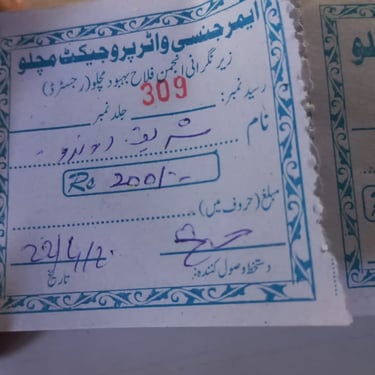 ایمرجنسی واٹر پروجیکٹ مچلو
زیر نگرانی انجمن فلاح بہبود مچلو (رجسٹرڈ)
رسید نمبر: 309 جلد نمبر
نام
Rs 200/-
مبلغ (حروف میں)
دستخط وصول کنندہ: تاریخ 22/4/20